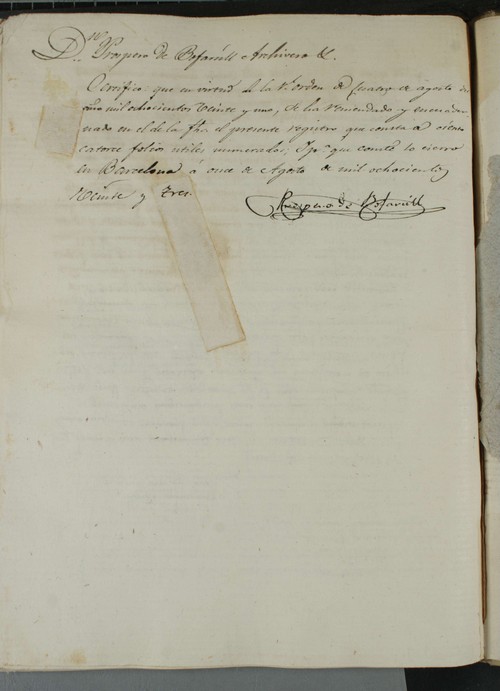 Dn. Prospero de Bofarull Archivero &.
Certifico que en virtud de la Rl. orden de quatro de agosto de
mil ochocientos veinte y uno, se ha remendado y encuader-
nado en el de la fha. el presente registro que consta de ciento
catorce folios utiles numerados; y pa. que conste lo cierro
en Barcelona á once de Agosto de mil ochocientos
veinte y tres.
Prospero de Bofarull